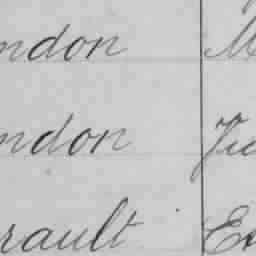 ndon M
ndon Ju
rault Ex